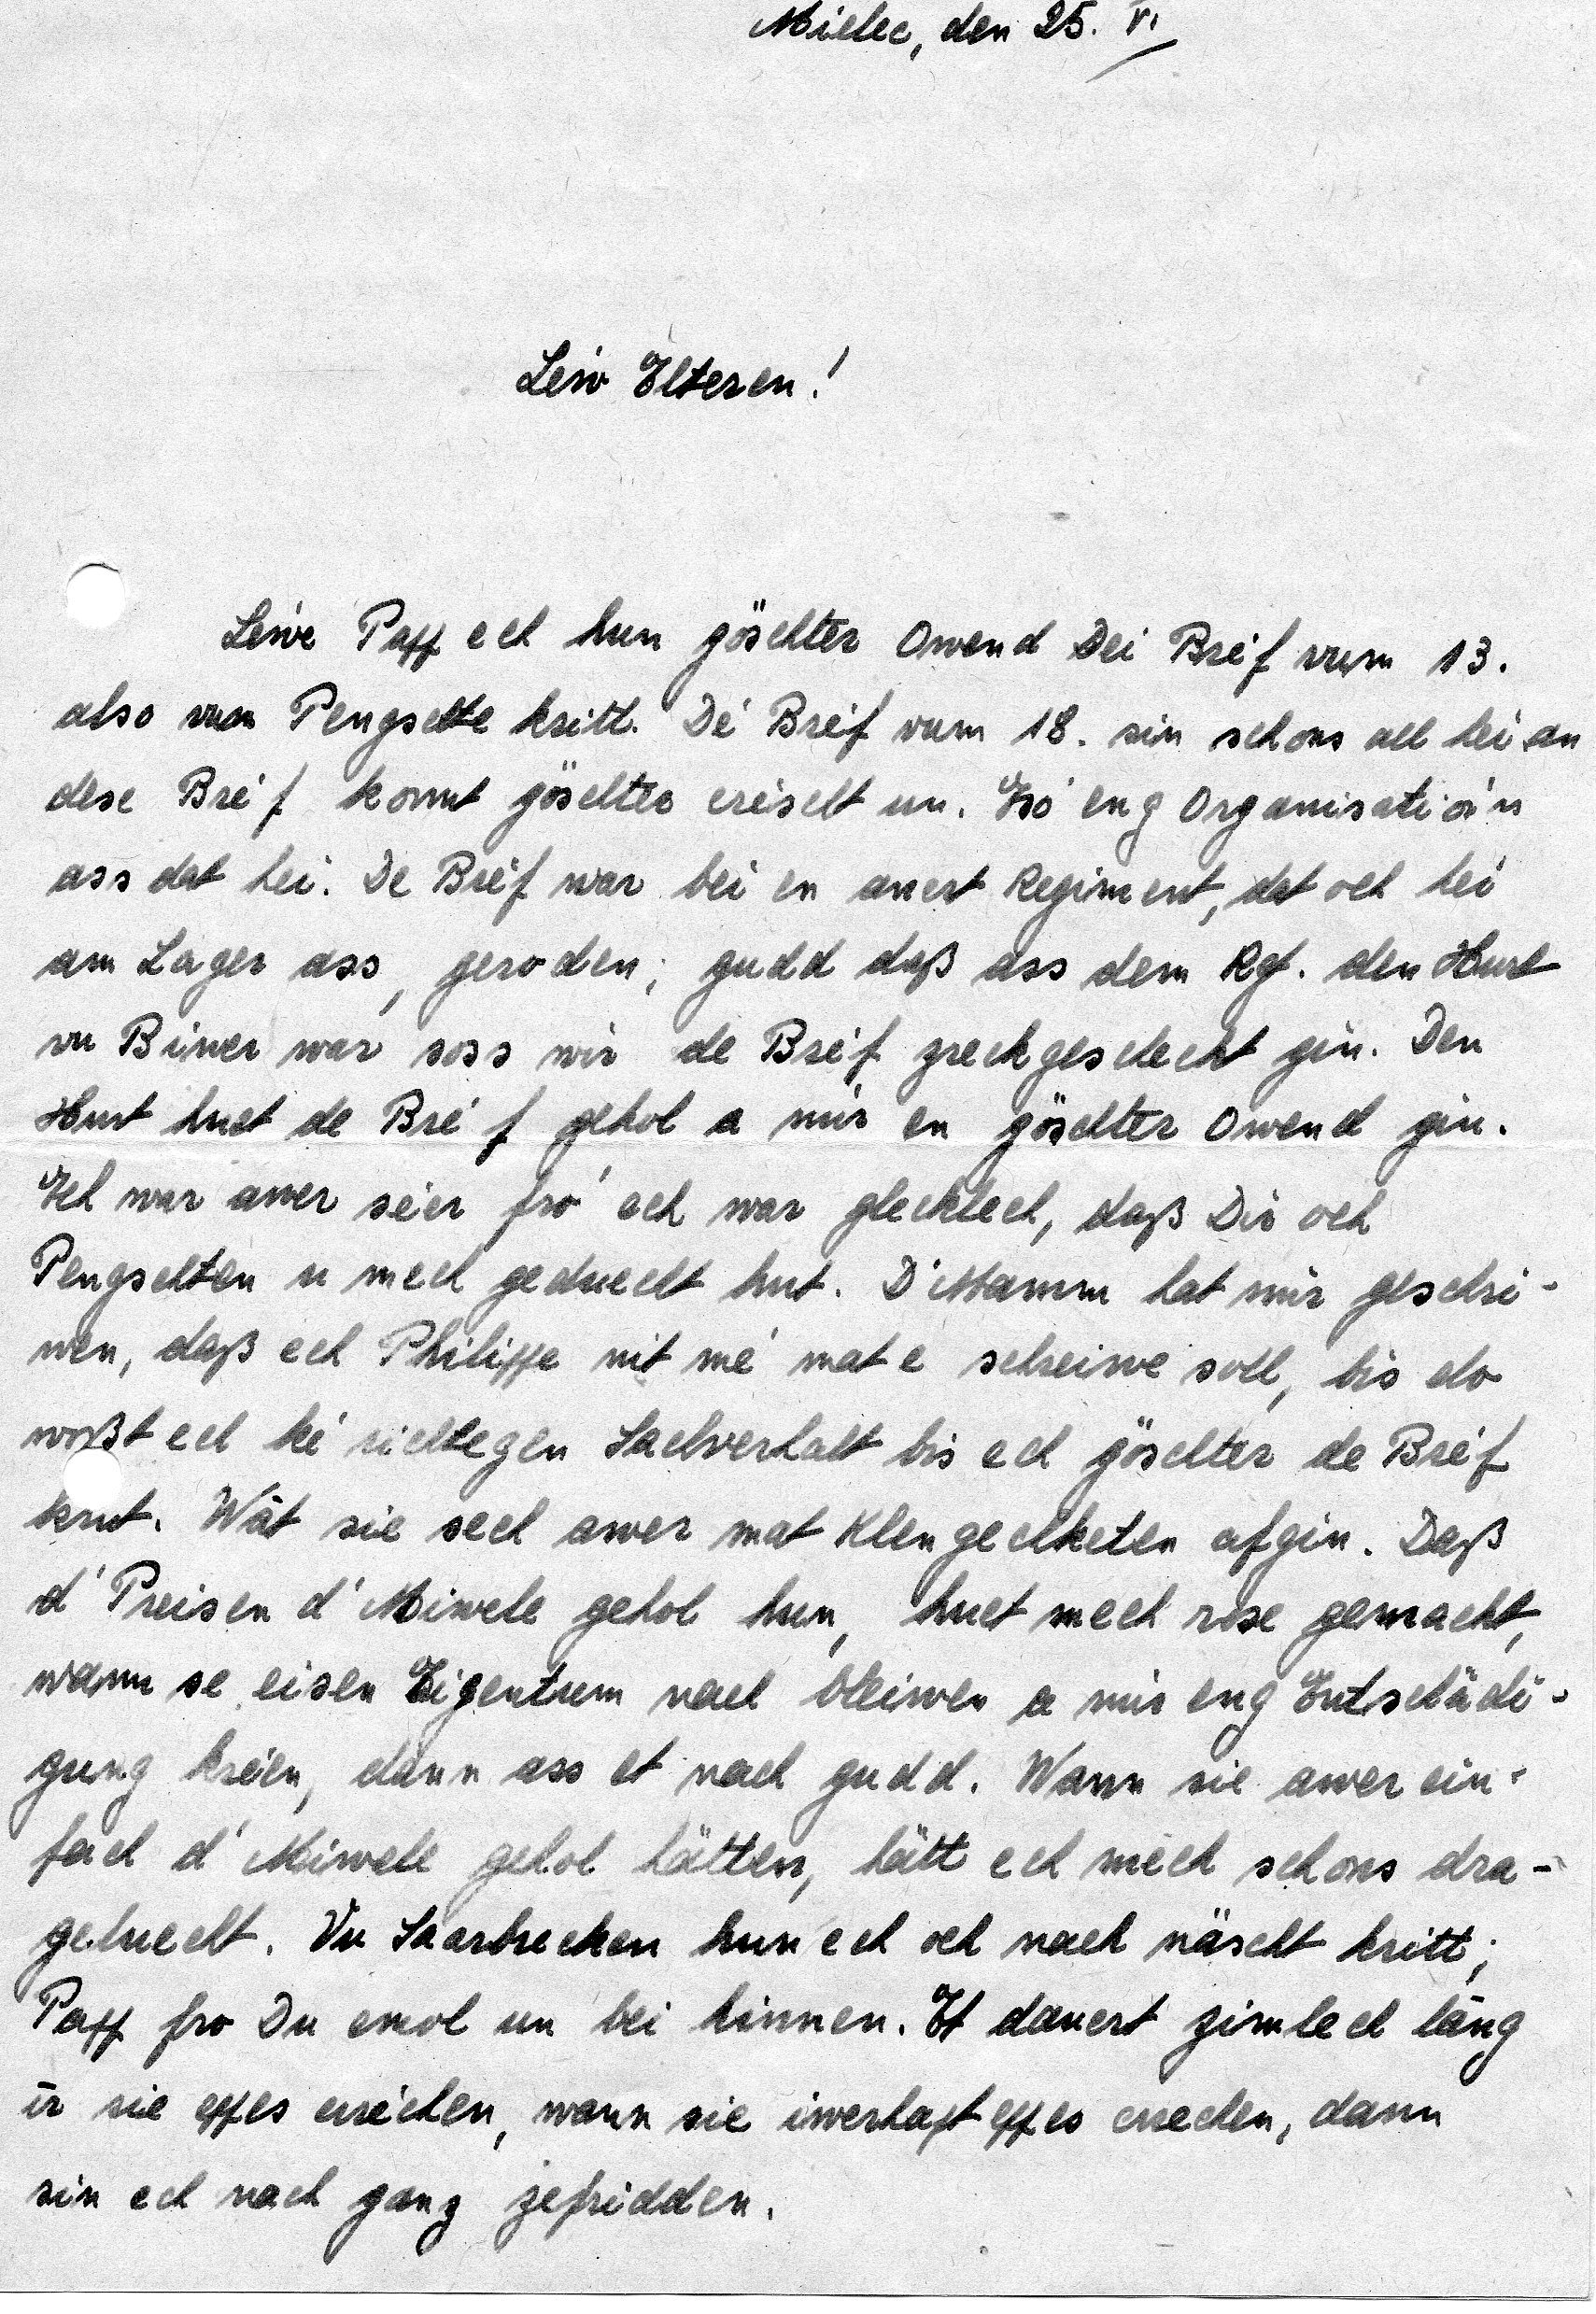 Mielec, den 25. VI
Léiw Elteren!
Léiwe Papp ech hun göschter Owend Dei Bréif vum 13.
also vum Pengschte kritt. Dé Bréif vum 18. sin schons all hei an
dese Bréif komt göschter eréischt un. Eso eng Organisatioún
ass dat hei. De Bréif war bei en anert Regiment, dat och hei
am Lager ass, geroden; gudd daß ass dem Rgt. den Hurt
vu Biwer war soss wir de Bréif zreckgescheckt gin. Den
Hurt huet de Bréif gehol a mir en göschter Owend gin.
Ech war awer séier fró ech war glecklech, daß Dir och
Pengschten u mech geduecht hut. D'Mamm hat mir geschri-
wen, daß ech Philippe nit mé mat e schreiwe soll, bis do
woßt ech ké richtegen Sachverhalt bis ech göschter de Bréif
krut. Wat sie sech awer mat Klengechketen ofgin. Daß
d'Preisen d'Miwele gehol hun, huet mech rose gemacht,
wann se eisen Eigentum nach bleiwen a mir eng Entschädi-
gung kréien, dann ass et nach gudd. Wann sie awer ein-
fach d'Miwele gehol hätten, hätt ech mech schons dra-
geluecht. Vu Saarbrecken hun ech och nach näscht kritt;
Papp fro Du emol un bei hinnen. Et dauert zimlech lang
ir sie eppes erréchen, wann sie iwerhapt eppes errechen, dann
sin ech nach ganz zefridden.